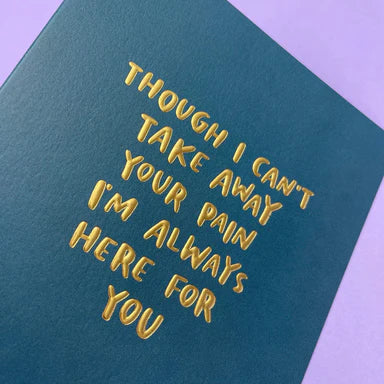 THOUGH I CAN'T
TAKE AWAY
YOUR PAIN
I'M ALWAYS
HERE FOR
YOU